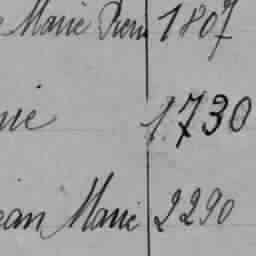 Marie Pierre 1807
nie 1.730
ean Marie 2290